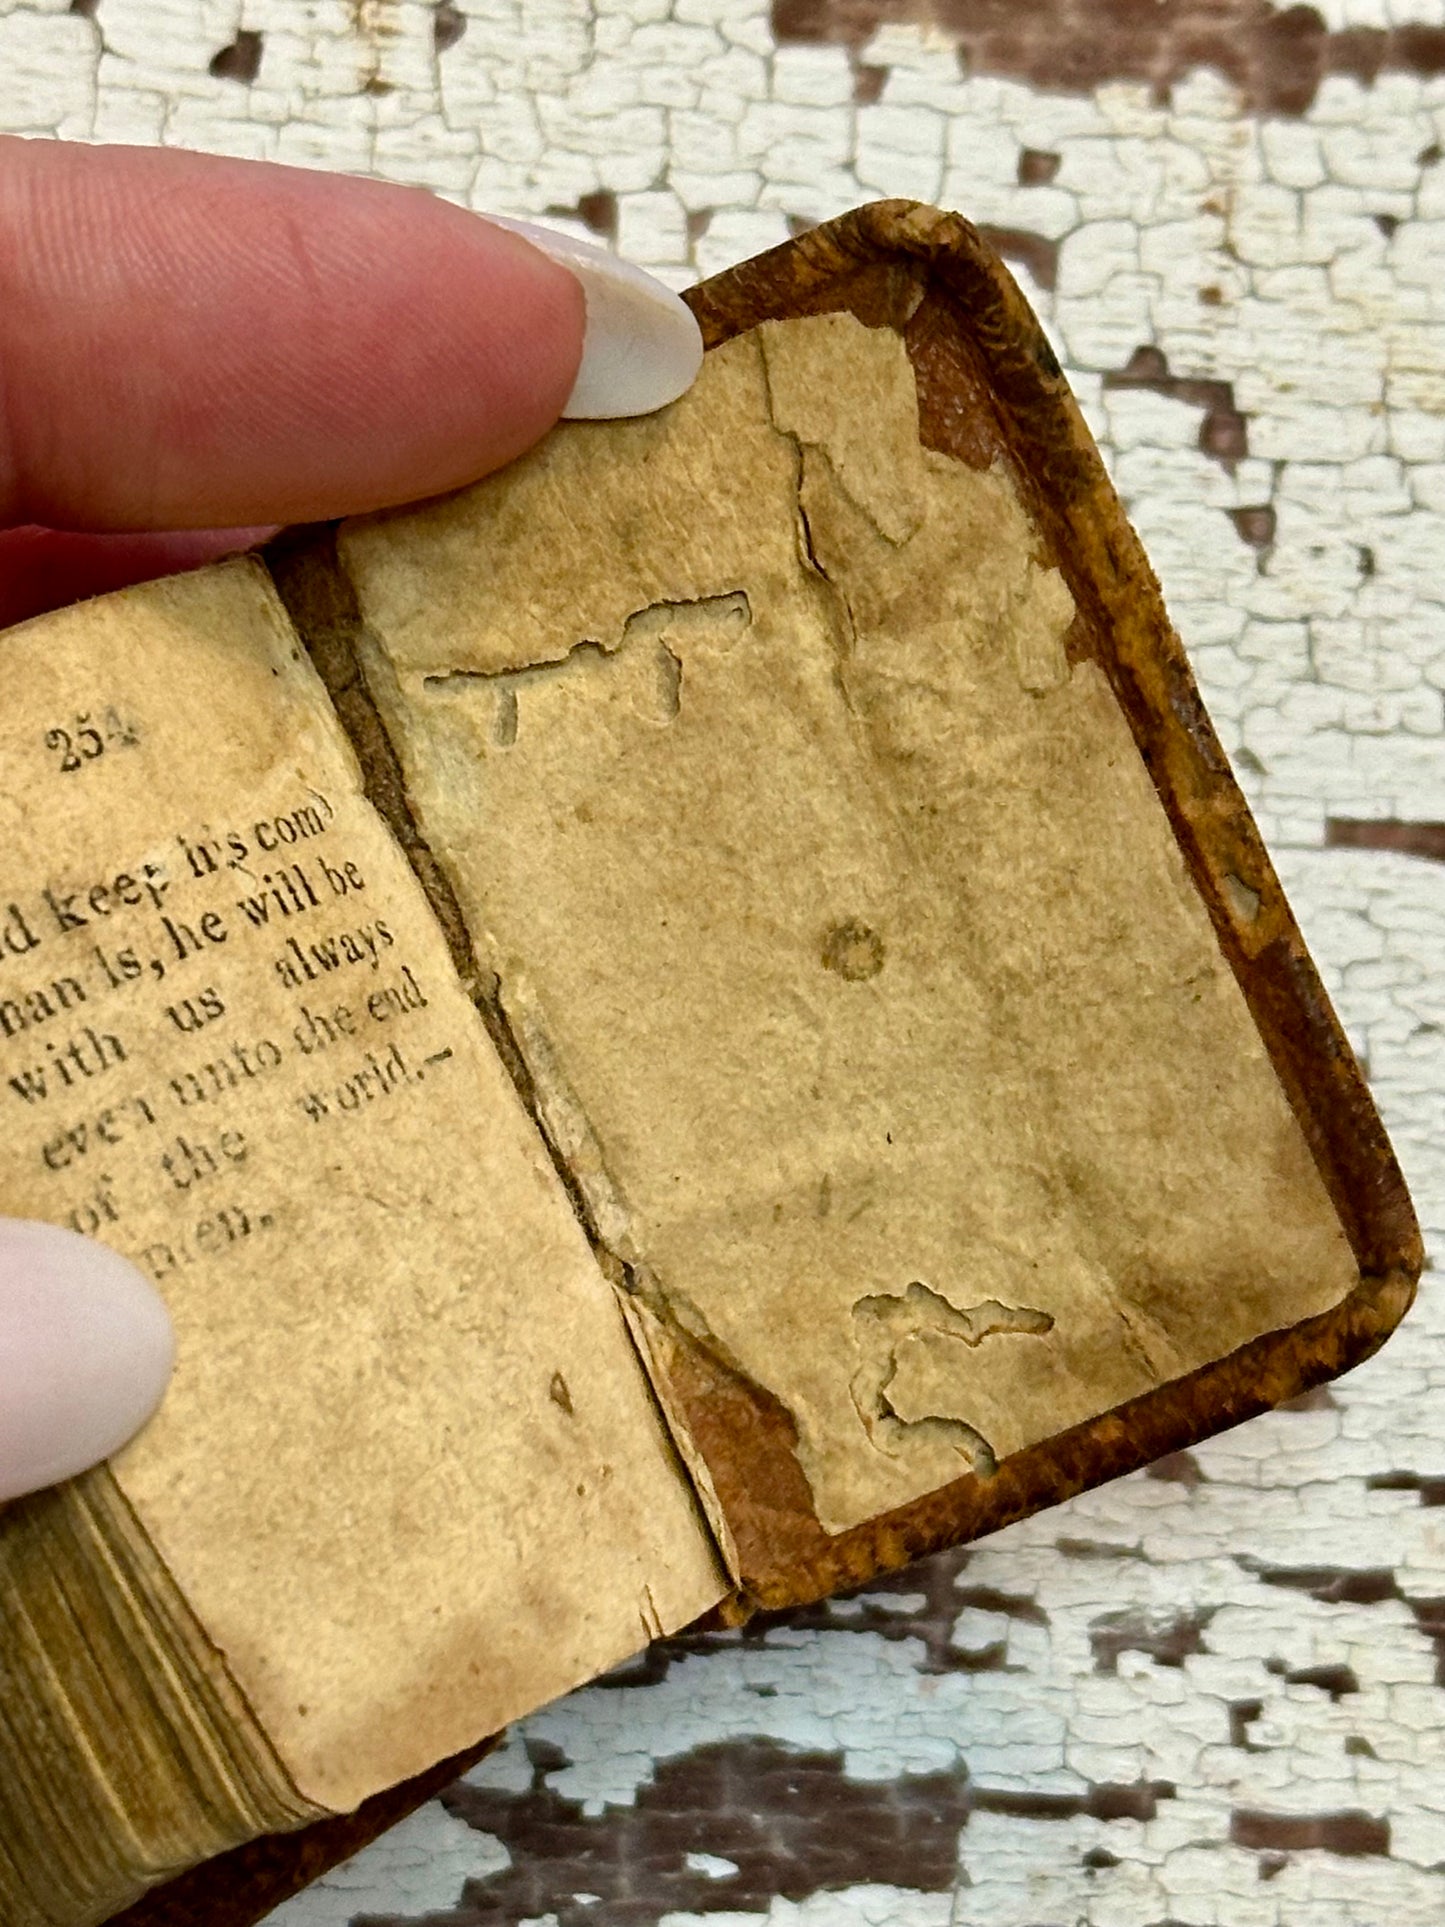 254
d keep his com
mands, he will be
with us always
even unto the end
of the world.—
men.